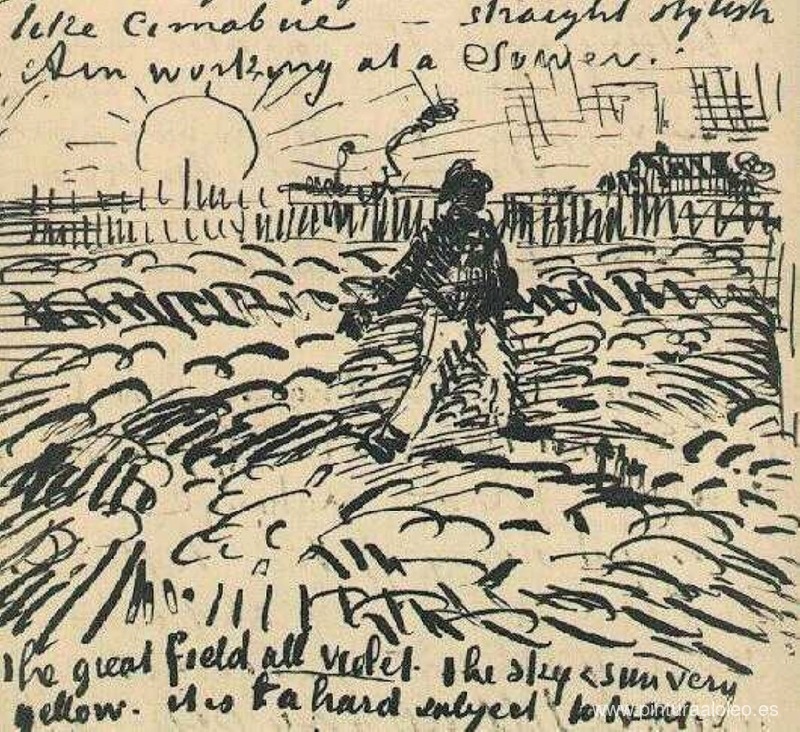 like Cimabue – straight stylish
Am working at a Sower.
The great field all violet. the sky & sun very
yellow. it is a hard subject to treat
www.pinturaaloleo.es